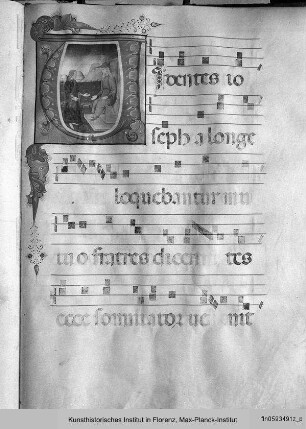 identes io
seph a longe
loquebantur mu
tu o fratres dicentes
ecce somniator venit
Kunsthistorisches Institut in Florenz, Max-Planck-Institut